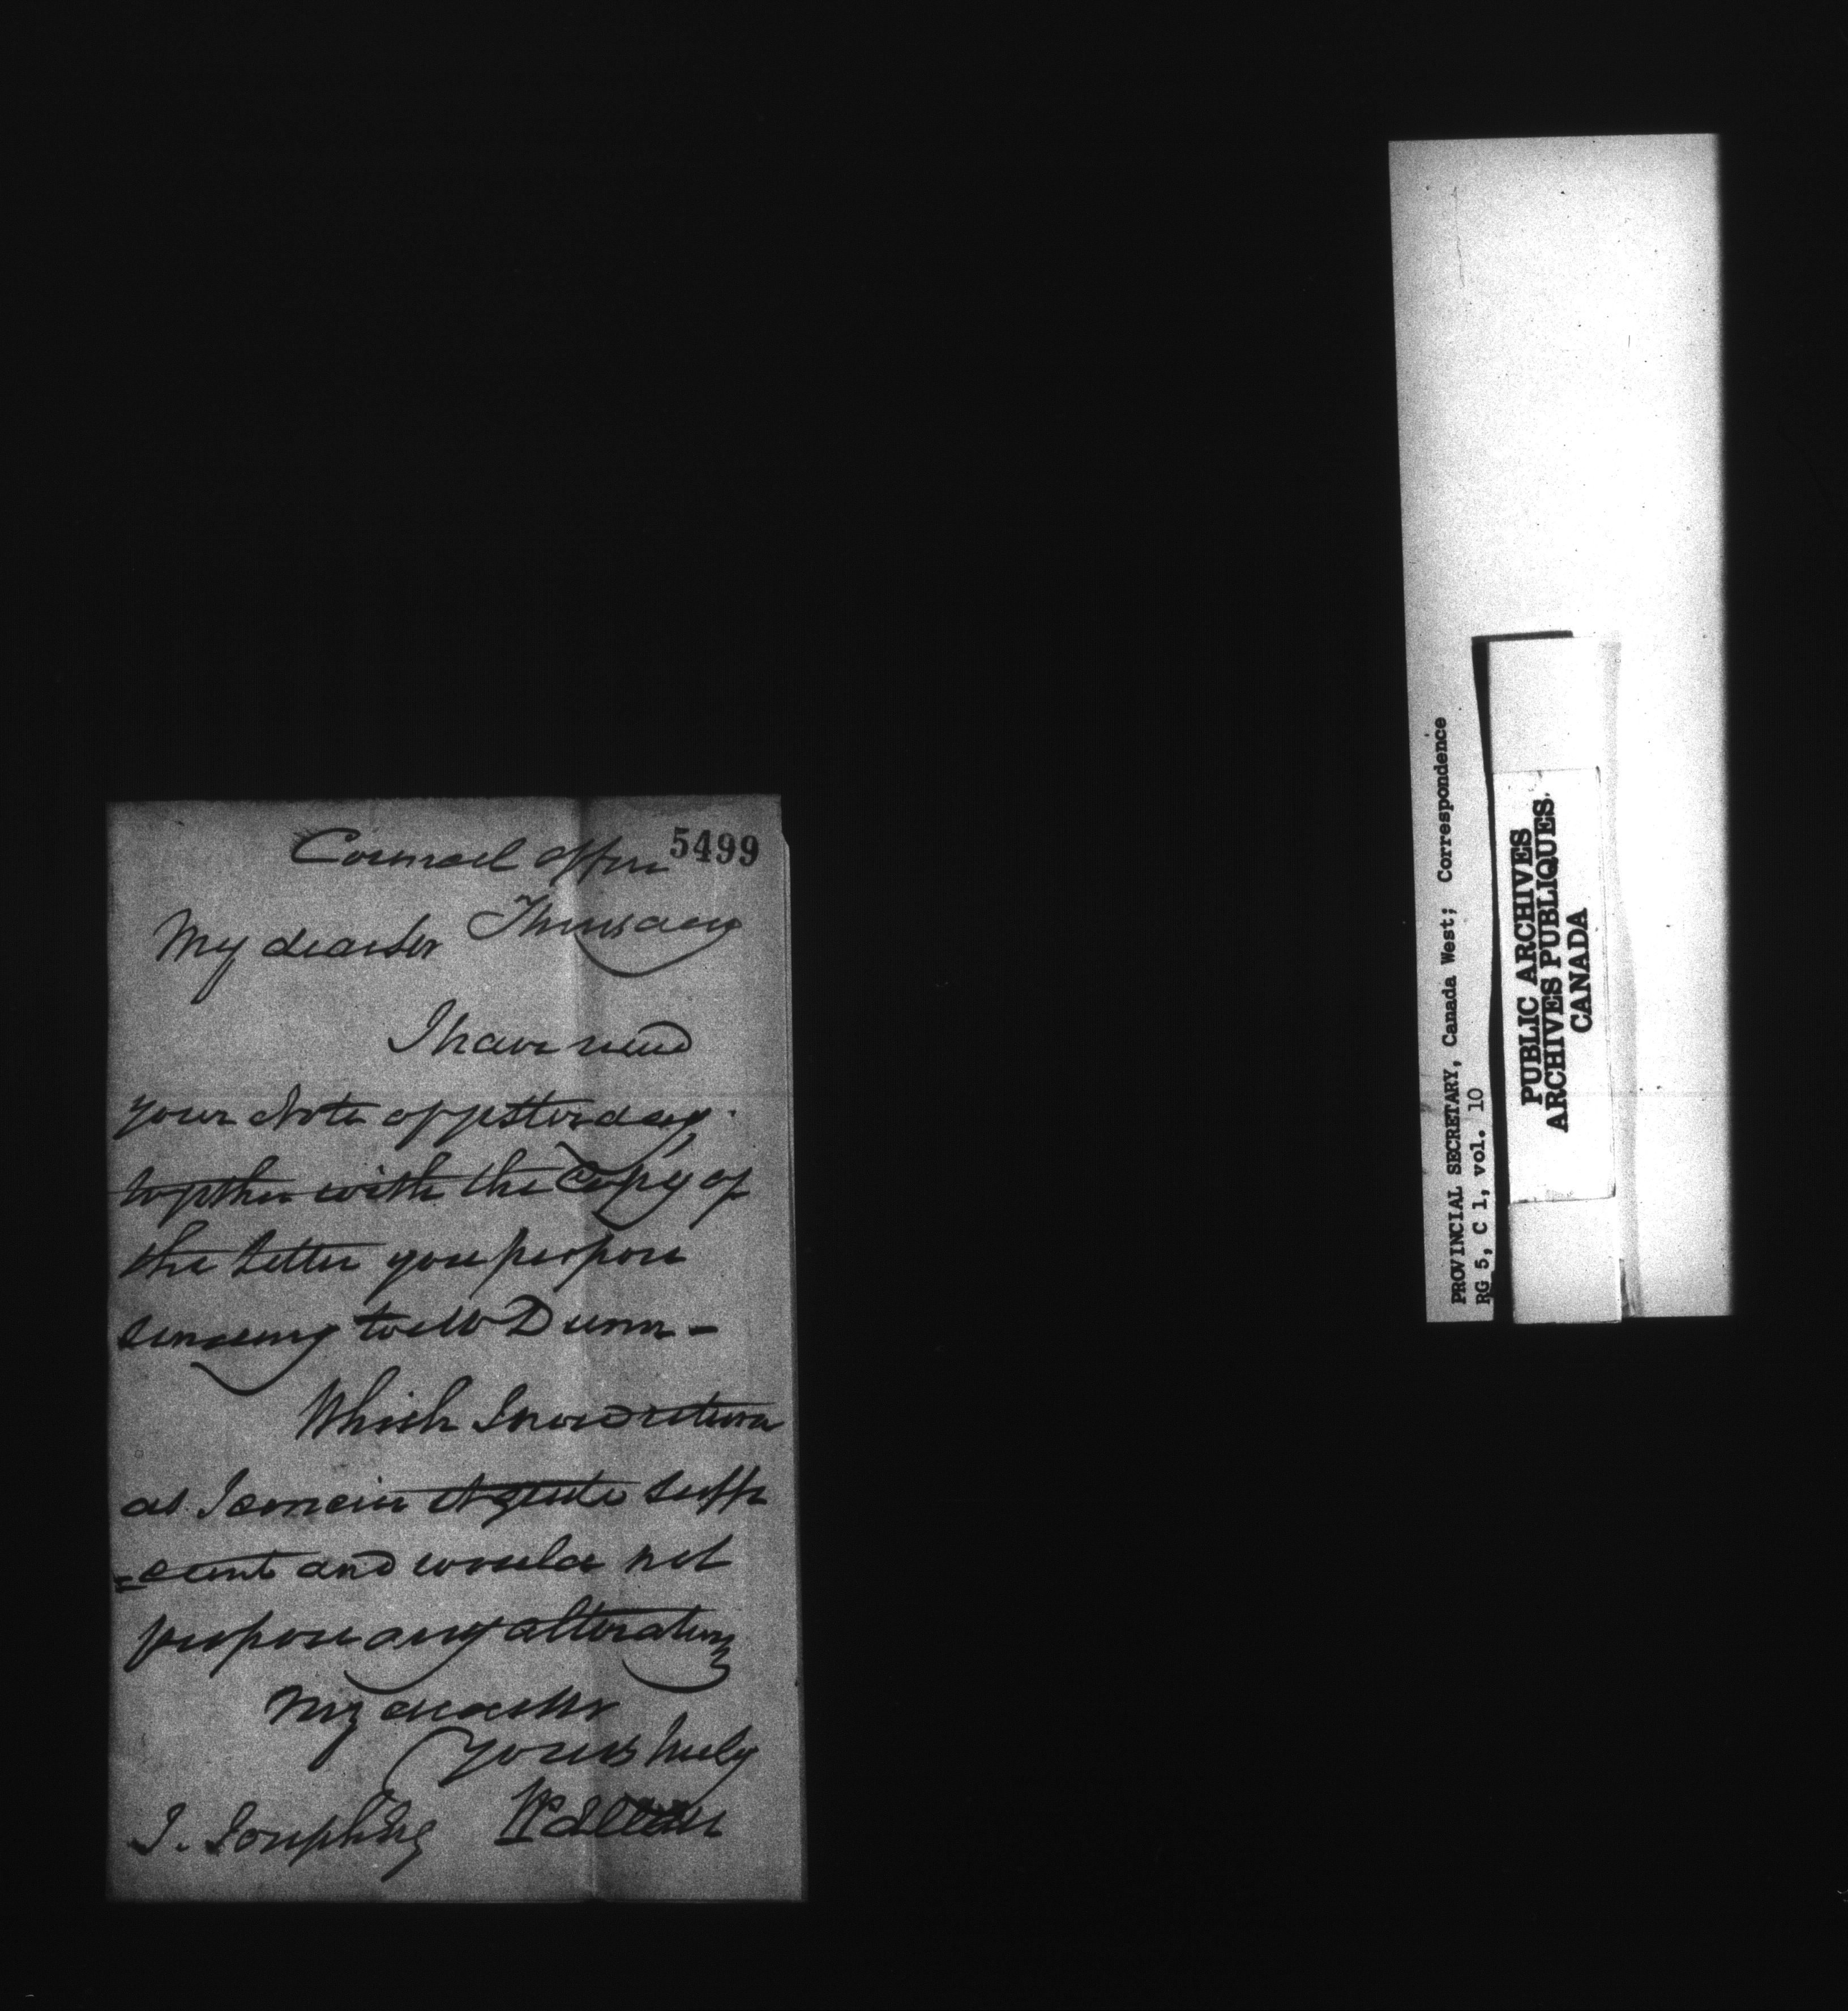 5499
Council office
Thursday
My dear Sir
I have read
your Note of yesterday.
together with the Copy of
the letter you propose
sending to Mr Dunn -
Which I now return
as I conceive it quite suffi
=cient and would not
propose any alteration
My dear Sir
Yours truly
J. Joseph Esq
PROVINCIAL SECRETARY, Canada West; Correspondence
RG 5, C 1, vol. 10
PUBLIC ARCHIVES
ARCHIVES PUBLIQUES
CANADA